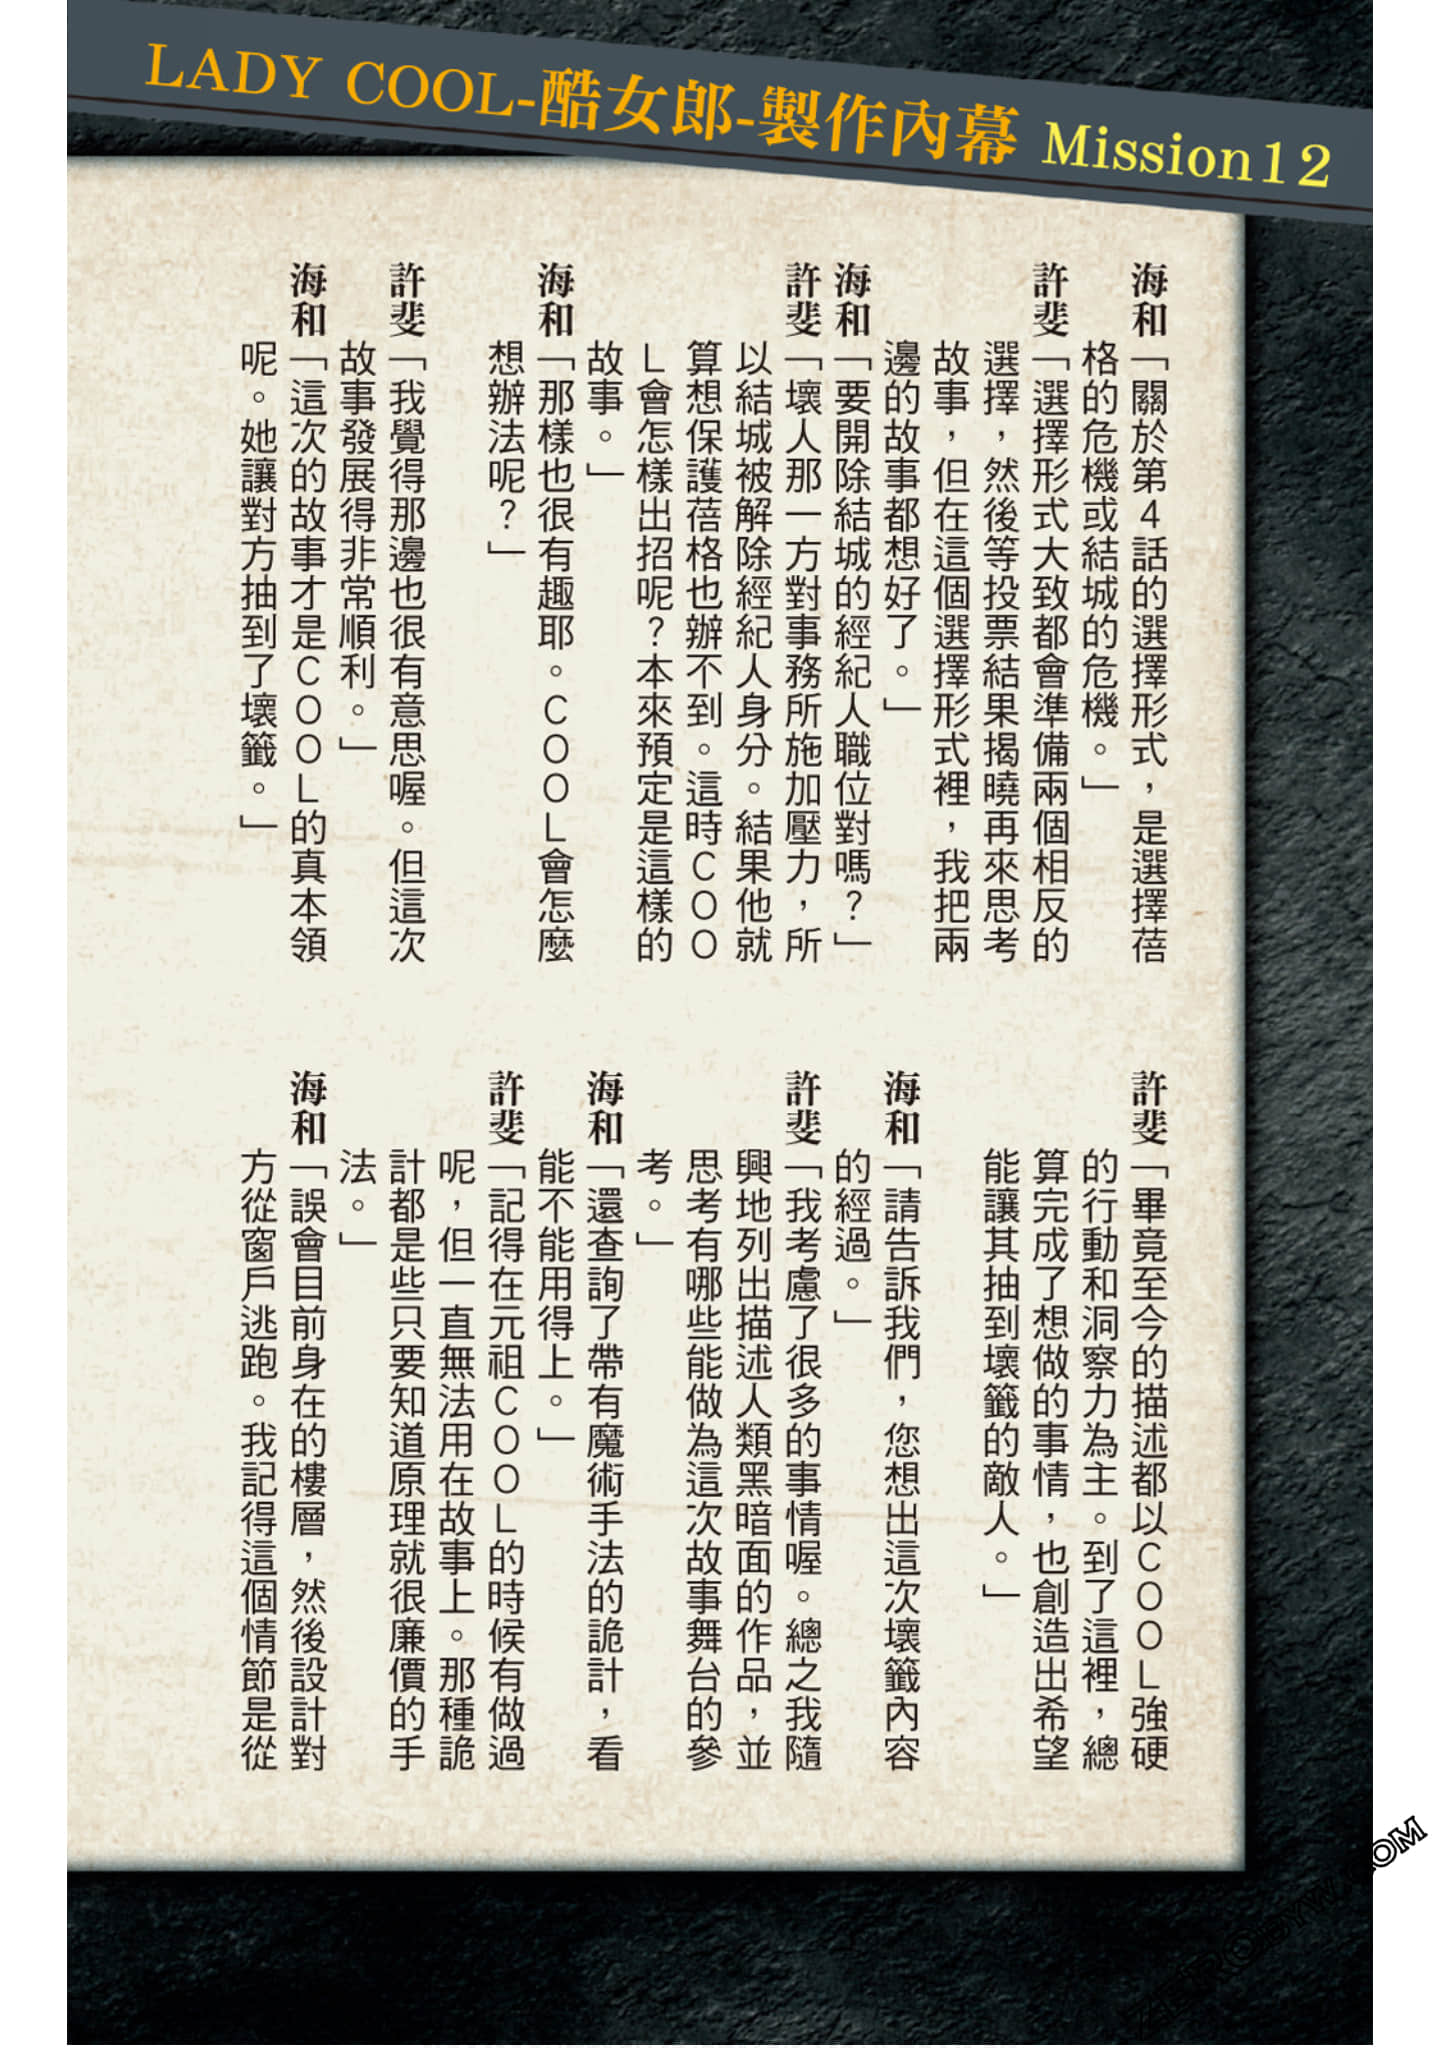 LADY COOL-酷女郎-製作內幕 Mission12
海和「關於第4話的選擇形式，是選擇蓓
格的危機或結城的危機。」
許斐「選擇形式大致都會準備兩個相反的
選擇，然後等投票結果揭曉再來思考
故事，但在這個選擇形式裡，我把兩
邊的故事都想好了。」
海和「要開除結城的經紀人職位對嗎？」
許斐「壞人那一方對事務所施加壓力，所
以結城被解除經紀人身分。結果他就
算想保護蓓格也辦不到。這時ＣＯＯ
Ｌ會怎樣出招呢？本來預定是這樣的
故事。」
海和「那樣也很有趣耶。ＣＯＯＬ會怎麼
想辦法呢？」
許斐「我覺得那邊也很有意思喔。但這次
故事發展得非常順利。」
海和「這次的故事才是ＣＯＯＬ的真本領
呢。她讓對方抽到了壞籤。」
許斐「畢竟至今的描述都以ＣＯＯＬ強硬
的行動和洞察力為主。到了這裡，總
算完成了想做的事情，也創造出希望
能讓其抽到壞籤的敵人。」
海和「請告訴我們，您想出這次壞籤內容
的經過。」
許斐「我考慮了很多的事情喔。總之我隨
興地列出描述人類黑暗面的作品，並
思考有哪些能做為這次故事舞台的參
考。」
海和「還查詢了帶有魔術手法的詭計，看
能不能用得上。」
許斐「記得在元祖ＣＯＯＬ的時候有做過
呢，但一直無法用在故事上。那種詭
計都是些只要知道原理就很廉價的手
法。」
海和「誤會目前身在的樓層，然後設計對
方從窗戶逃跑。我記得這個情節是從